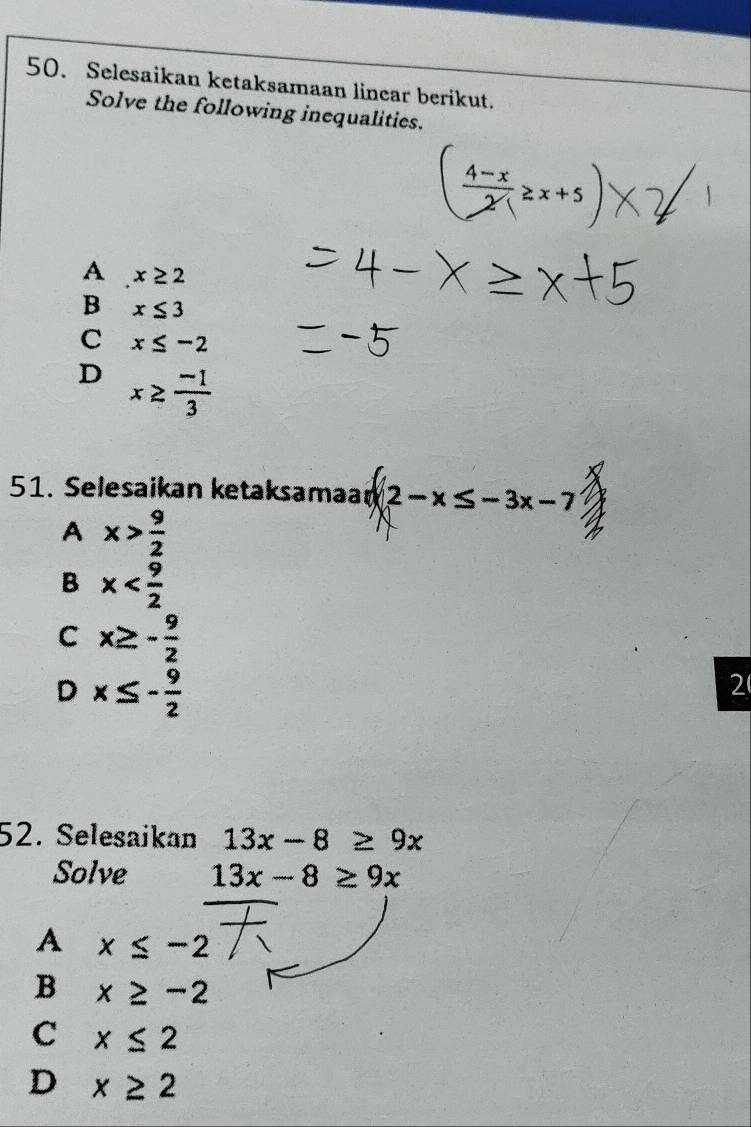 50. Selesaikan ketaksamaan linear berikut.
Solve the following inequalities.
(4-x/2 ≥ x+5) × 2/1
= 4 - x ≥ x + 5
= -5
A x ≥ 2
B x ≤ 3
C x ≤ -2
D x ≥ -1/3
51. Selesaikan ketaksamaan 2 - x ≤ - 3x - 7
A x > 9/2
B x < 9/2
C x ≥ - 9/2
D x ≤ - 9/2
2
52. Selesaikan 13x - 8 ≥ 9x
Solve 13x - 8 ≥ 9x
A x ≤ -2
B x ≥ -2
C x ≤ 2
D x ≥ 2